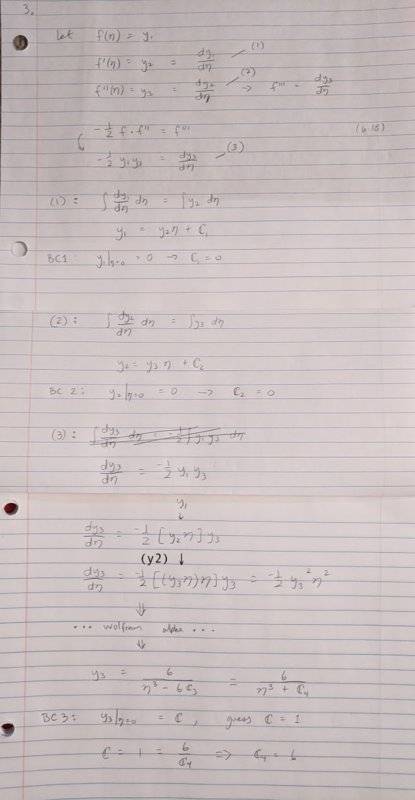 3.
let f(η) = y₁
f'(η) = y₂ = dy₁/dη (1)
f''(η) = y₃ = dy₂/dη (2) → f''' = dy₃/dη
-1/2 f · f'' = f''' (6.18)
-1/2 y₁y₃ = dy₃/dη (3)
(1): ∫ dy₁/dη dη = ∫y₂ dη
y₁ = y₂η + C₁
BC1: y₁|η=0 = 0 → C₁ = 0
(2): ∫ dy₂/dη dη = ∫y₃ dη
y₂ = y₃η + C₂
BC 2: y₂|η=0 = 0 → C₂ = 0
(3): ∫ dy₃/dη dη = -1/2 ∫ y₁ y₃ dη
dy₃/dη = -1/2 y₁ y₃
y₁
↓
dy₃/dη = -1/2 [y₂η] y₃
(y2) ↓
dy₃/dη = -1/2 [(y₃η)η] y₃ = -1/2 y₃² η²
⇓
... wolfram alpha ...
⇓
y₃ = 6/(η³ - 6C₃) = 6/(η³ + C₄)
BC3: y₃|η=0 = C, guess C = 1
C = 1 = 6/C₄ ⇒ C₄ = 6